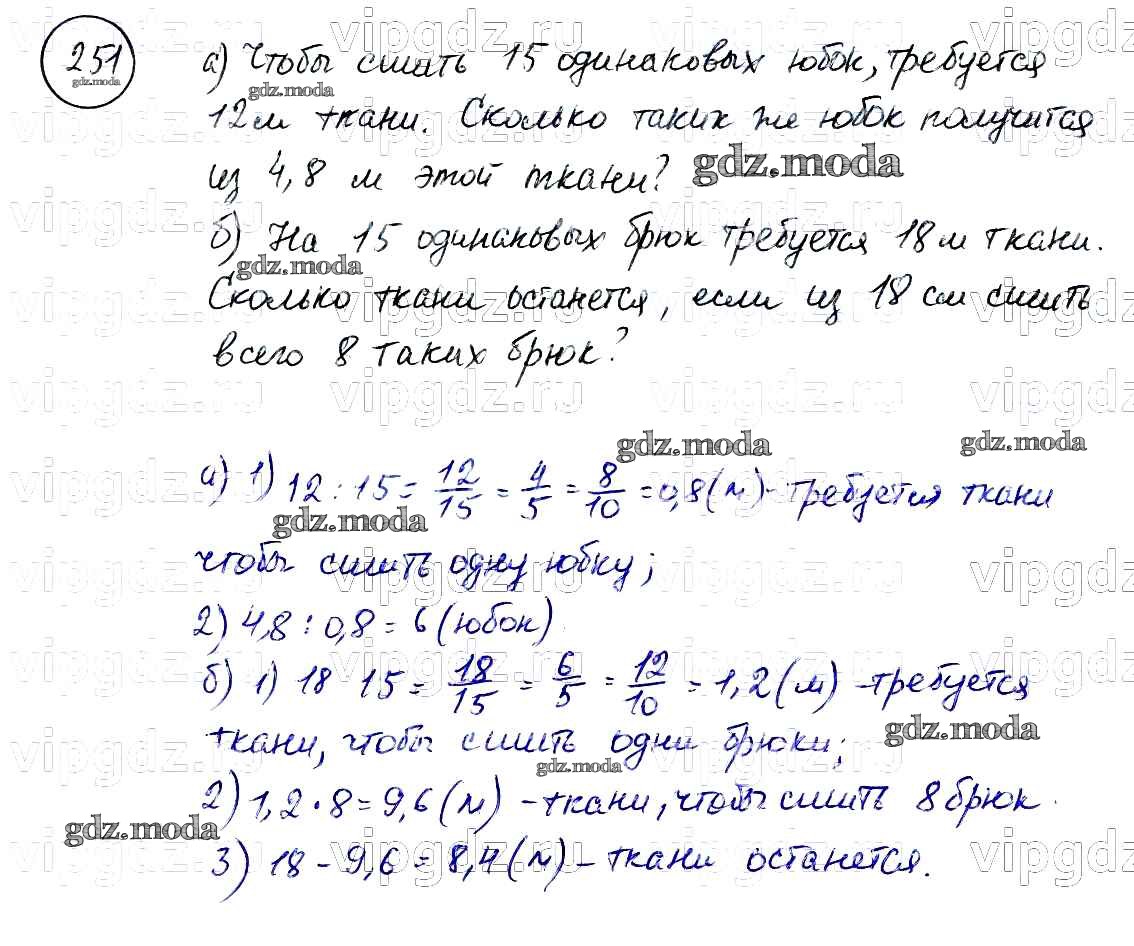 251
а) Чтобы сшить 15 одинаковых юбок, требуется
12 м ткани. Сколько таких же юбок получится
из 4,8 м этой ткани?
б) На 15 одинаковых брюк требуется 18 м ткани.
Сколько ткани останется, если из 18 см сшить
всего 8 таких брюк?
а) 1) 12 : 15 = 12/15 = 4/5 = 8/10 = 0,8 (м) - требуется ткани
чтобы сшить одну юбку;
2) 4,8 : 0,8 = 6 (юбок)
б) 1) 18 15 = 18/15 = 6/5 = 12/10 = 1,2 (м) - требуется
ткани, чтобы сшить одни брюки;
2) 1,2 · 8 = 9,6 (м) - ткани, чтобы сшить 8 брюк.
3) 18 - 9,6 = 8,4 (м) - ткани останется.
gdz.moda
vipgdz.ru